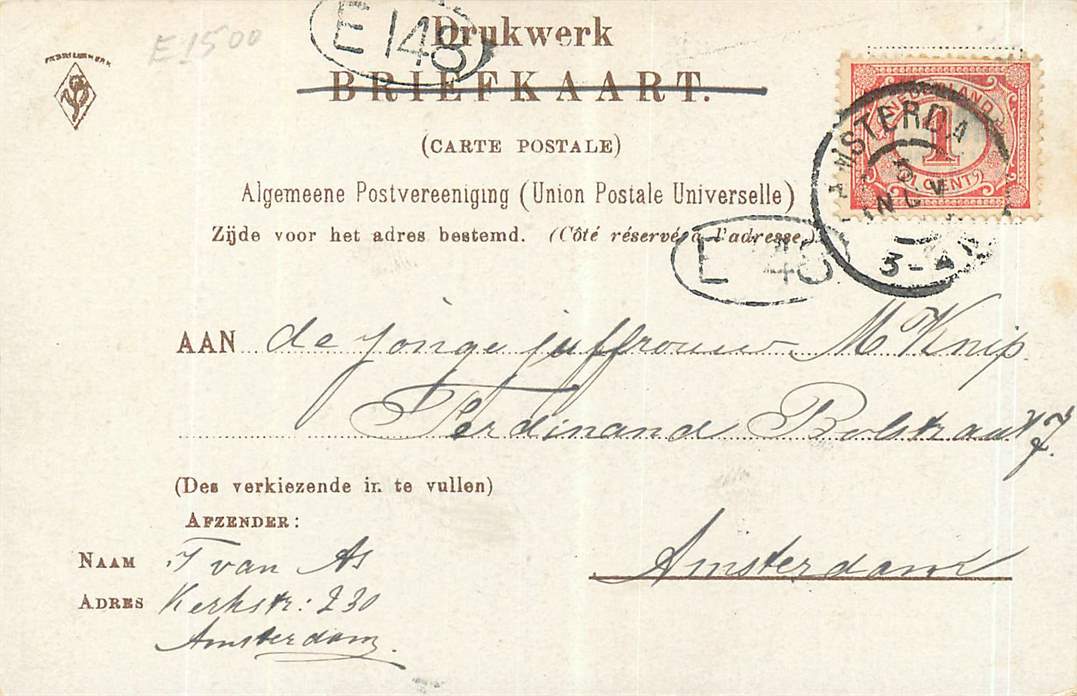 E 1500
E 148
Drukwerk
BRIEFKAART.
(CARTE POSTALE)
Algemeene Postvereeniging (Union Postale Universelle)
Zijde voor het adres bestemd. (Côté réservé à l'adresse
NEDERLAND
1
(1. CENT)
AMSTERDA
3-4
E 48
AAN de jonge juffrouw M Knip
Ferdinand Bolstraat
(Des verkiezende in te vullen)
AFZENDER:
NAAM J van As
ADRES Kerkstr: 230
Amsterdam.
Amsterdam